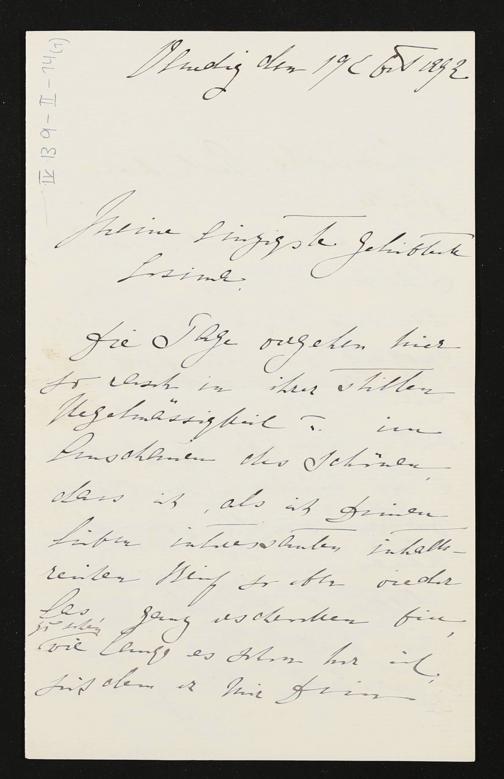 IV 139-II-14(1)
Venedig den 19t Oct 1892
Meine einzigste geliebteste
Cosima.
Die Tage vergehen hier
so rasch in ihrer stillen
Regelmässigkeit u. im
Anschauen des Schönen,
dass ich, als ich Deinen
lieben interessanten inhalts-
reichen Brief so eben wieder
las ganz erschrocken bin,
zu sehen
wie lange es schon her ist,
seitdem er mir Deine